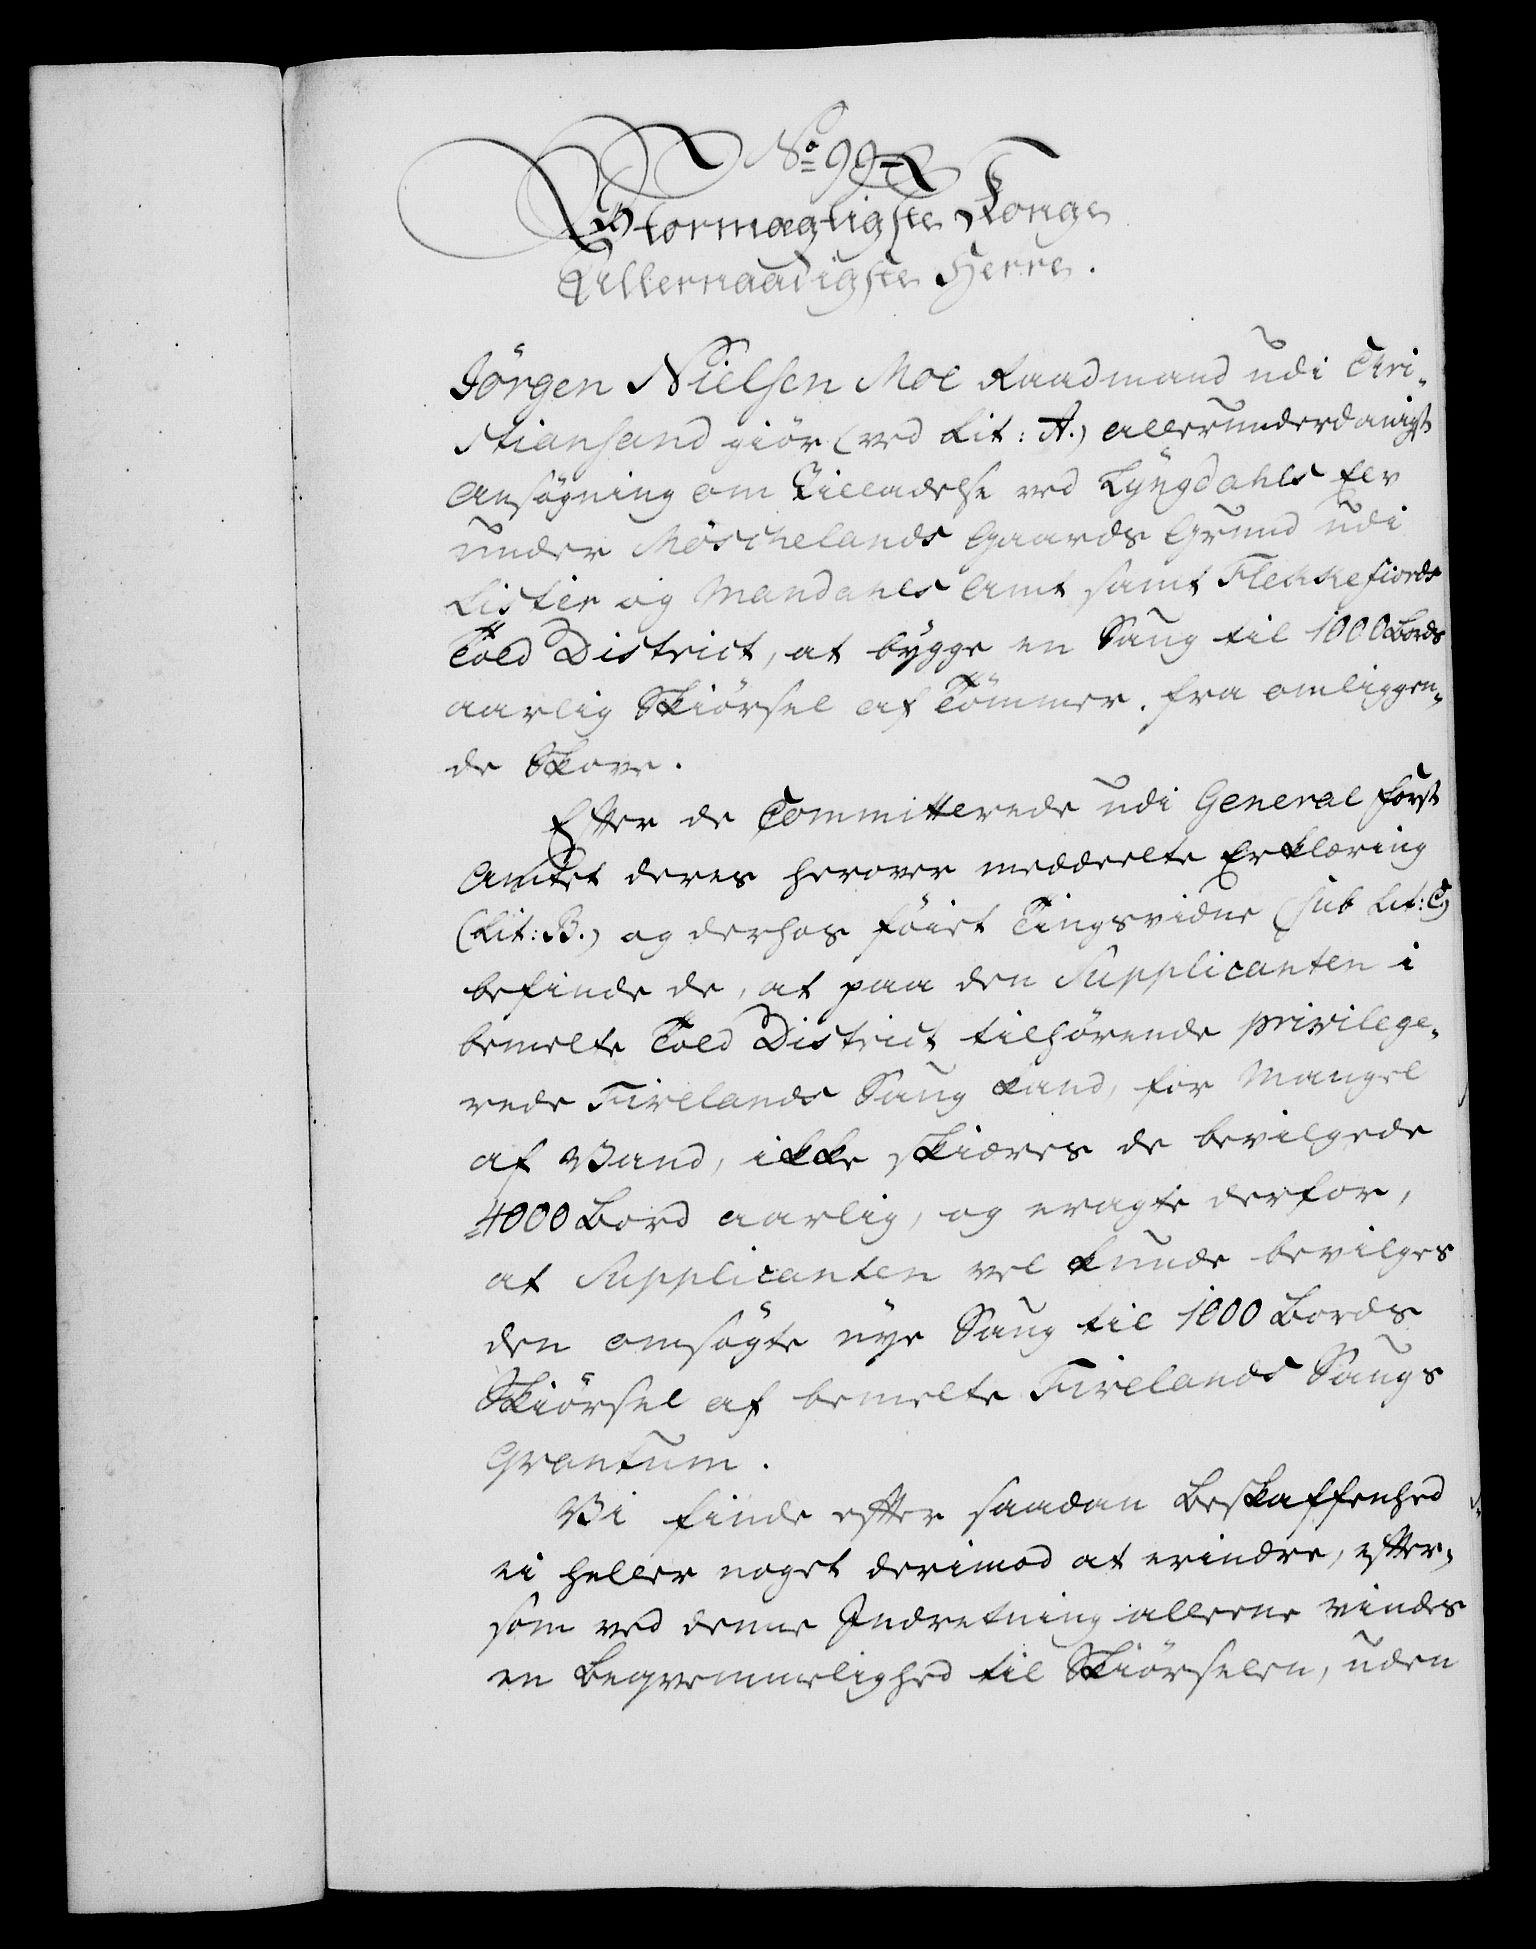 No 99
Stormægtigste Konge
Allernaadigste Herre.
Jörgen Nielsen Moe Raadmand udi Chri-
stiansand giör (ved Lit: A.) allerunderdanigst
Ansögning om Tilladelse ved Lyngdahls Elv
under Möschelands Gaards Grund udi
Lister og Mandahls Amt samt Flekkefiords
Told District, at bygge en Saug til 1000 Bords
aarlig Skiörsel af Tömmer fra omliggen-
de Skove.
Efter de Committerede udi General Forst
Amtet deres herover meddeelte Erklæring
(Lit: B.) og derhos föiet Tingsvidne (sub Lit: C)
befinde de, at paa den Supplicanten i
bemelte Told District tilhörende privilege-
rede Firelands Saug kand, for Mangel
af Vand, ikke skiæres de bevilgede
4000 Bord aarlig, og eragte derfor,
at Supplicanten vel kunde bevilges
den omsögte nye Saug til 1000 Bords
Skiörsel af bemelte Firelands Saugs
Qvantum.
Vi finde efter saadan Beskaffenhed
ei heller noget derimod at erindre, efter-
som ved denne Indretning alleene vindes
en Beqvemmelighed til Skiörselen, uden